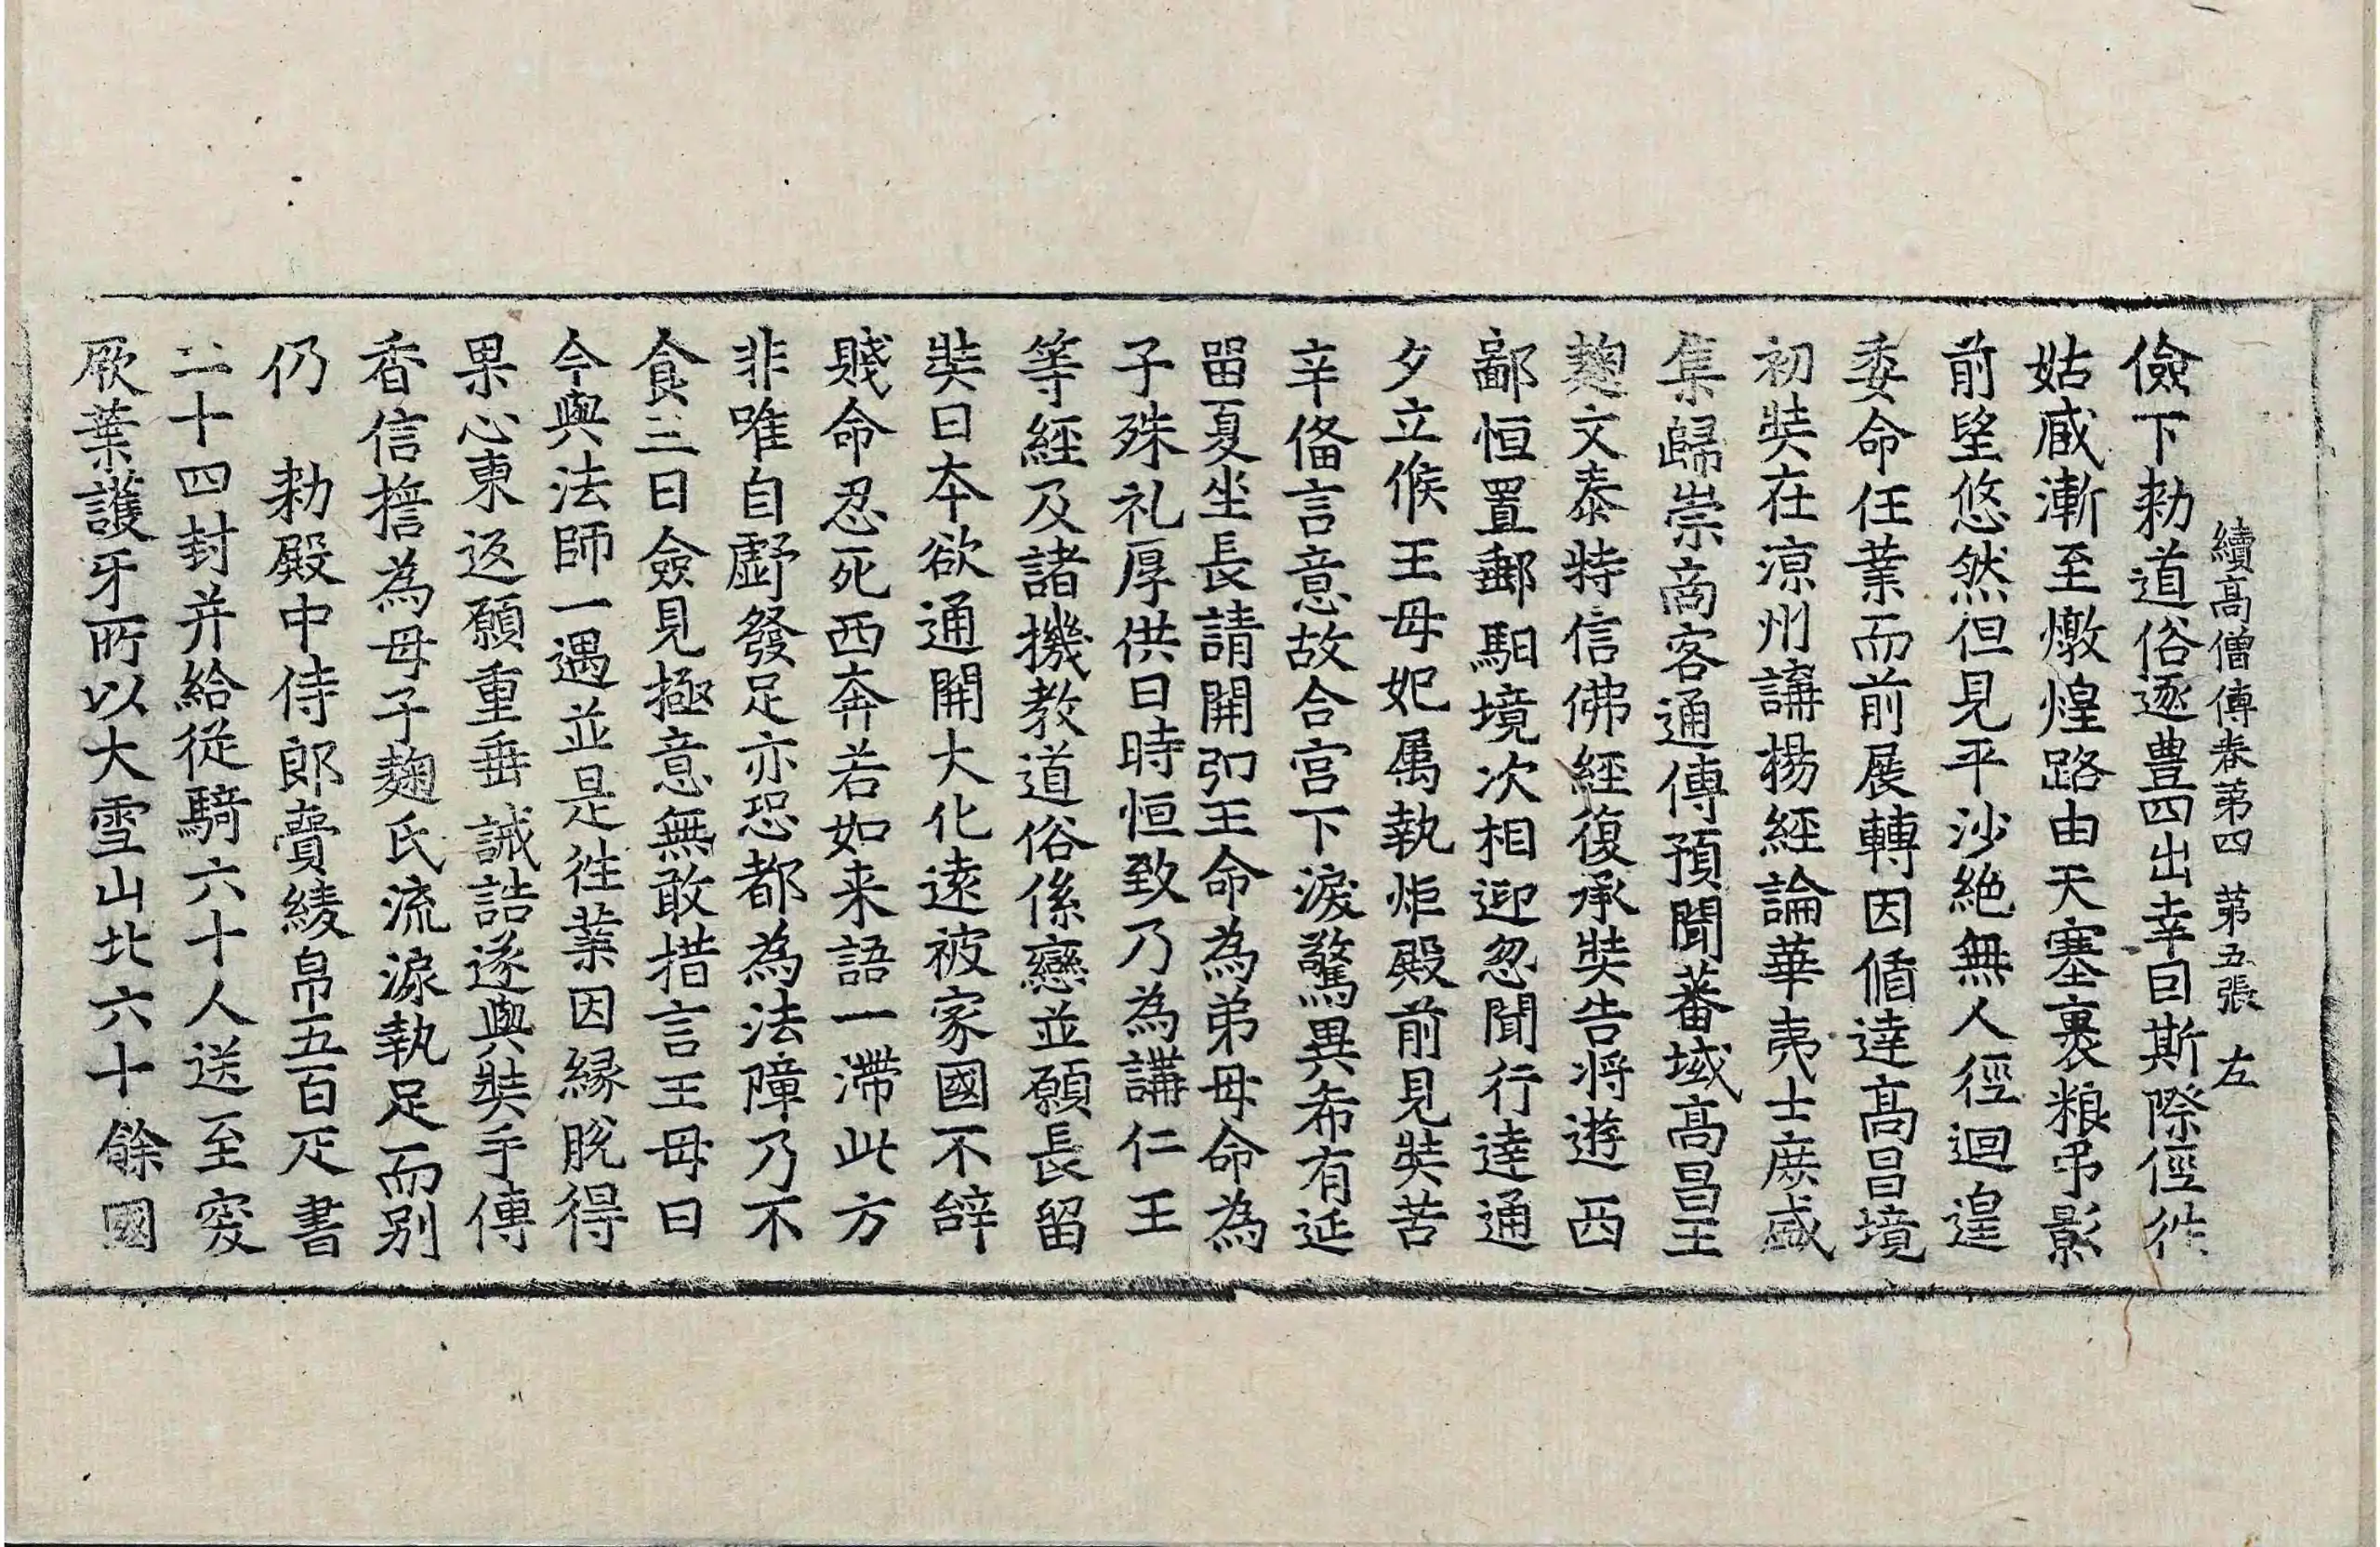 續高僧傳卷苐四　苐五張　左
儉下勑道俗逐豊四出幸因斯際徑往
姑臧漸至燉煌路由天塞裹粮吊影
前望悠然但見平沙絶無人徑迴遑
委命任業而前展轉因循達高昌境
初奘在涼州講揚經論華夷士庶盛
集歸崇商客通傳預聞蕃域高昌王
麴文泰特信佛經復承奘告將遊西
鄙恒置郵馹境次相迎忽聞行達通
夕立候王母妃属執炬殿前見奘苦
辛俻言意故合宫下淚驚異希有延
留夏坐長請開弘王命為弟母命為
子殊礼厚供日時恒致乃為講仁王
等經及諸機教道俗係戀並願長留
奘曰本欲通開大化遠被家國不辝
賤命忍死西奔若如来語一滯此方
非唯自虧發足亦恐都為法障乃不
食三日僉見極意無敢措言王母曰
今與法師一遇並是徃業因縁脫得
果心東返願重垂誡誥遂與奘手傳
香信擔為母子麹氏流淚執足而别
仍　勑殿中侍郎賷綾帛五百疋書
二十四封并給從騎六十人送至突
厥葉護牙所以大雪山北六十餘國